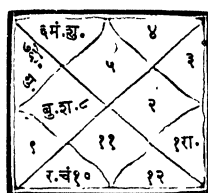 ६ मं. शु. ४
५ ३
बु. श. ८ २
९ ११ १ रा.
र. चं १० १२